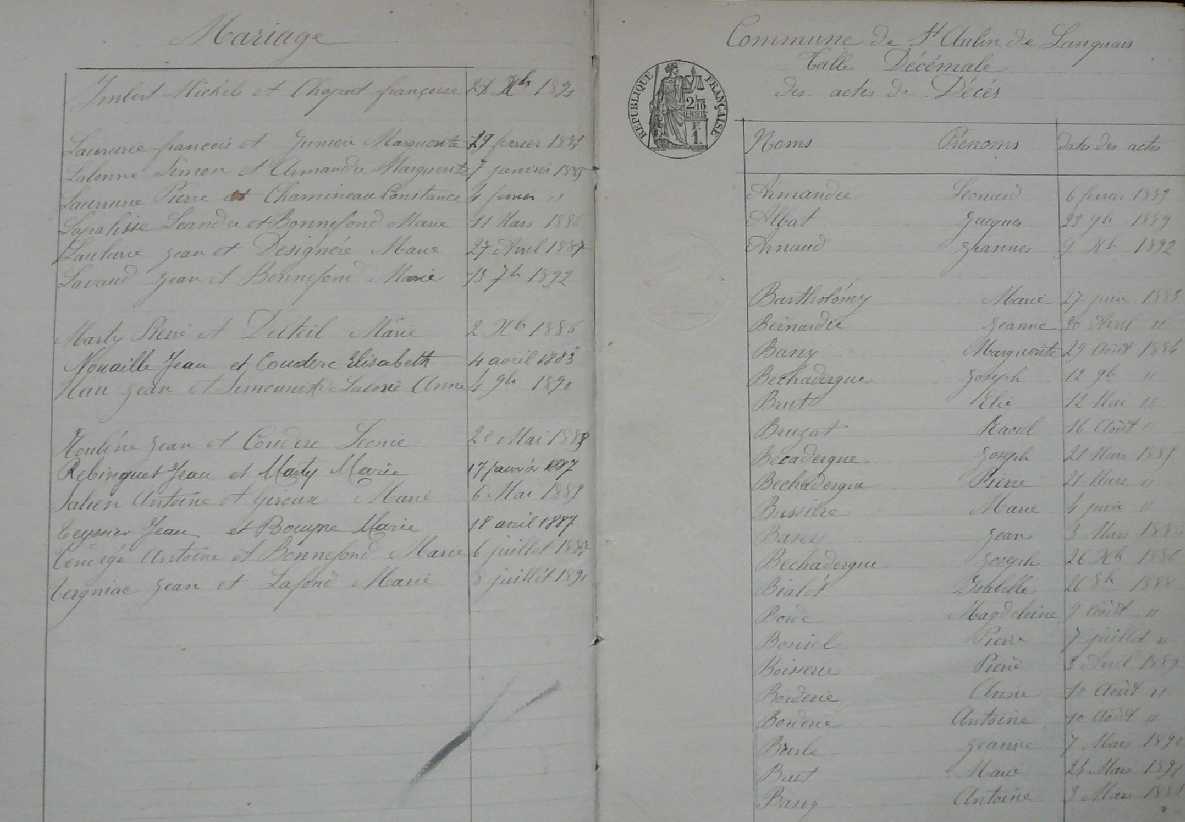 Mariage
Imbert Michel et Chapout françoise 28 Xbre 1890
Laurière françois et Junien Marguerite 19 février 1889
Lalonne Simon et Armandie Marguerite 7 janvier 1885
Laurrune Pierre et Chamineau Constance 4 fevrier "
Lapalisse Leandre et Bonnefond Marie 11 Mars 1886
Jean et Marie 27 Avril 1887
Lavaud Jean et Bonnefond Marie 13 7bre 1892
Marty Pierre et Duteil Marie 2 Xbre 1886
Nouaille Jean et Couderc Elisabeth 4 avril 1883
Jean et Anne 4 9bre 1890
Jean et Couderc Leonie 20 Mai 1888
Rebinguet Jean et Marty Marie 17 janvier 1887
Antoine et Marie 6 Mai 1889
Teyssier Jean et Bouyne Marie 18 avril 1887
Antoine et Bonnefond Marie 6 juillet
Vergniac Jean et Lafond Marie 8 juillet 1890
Commune de St Aubin de Lanquais
Table Décémale
des actes de Décès
RÉPUBLIQUE FRANÇAISE
2/10
Noms Prénoms dates des actes
Armandie Leonard 6 fevrier 1889
Albat Jacques 23 9bre 1889
Arnaud Jeannes 9 Xbre 1892
Bartholoméy Marie 27 juin 1883
Bernardie Jeanne 20 Avril "
Barry Marguerite 29 Août 1884
Bechadergue Joseph 12 9bre "
Brut Elie 12 Mai "
Bruzat Raoul 16 Août "
Becadergue Joseph 21 Mars 1885
Bechadergue Pierre 21 Mars "
Bussière Marie 4 juin "
Jean 3 Mars 1886
Bechadergue Joseph 26 Xbre 1886
Bialet Isabelle 26 8bre 1888
Magdeleine 9 Août "
Boniol Pierre 7 juillet "
Boisserie Pierre 3 Avril 1889
Borderie Anne 10 Août "
Borderie Antoine 10 Août "
Brule Jeanne 7 Mars 1890
Brut Marie 24 Mars 1891
Barry Antoine 3 Mars